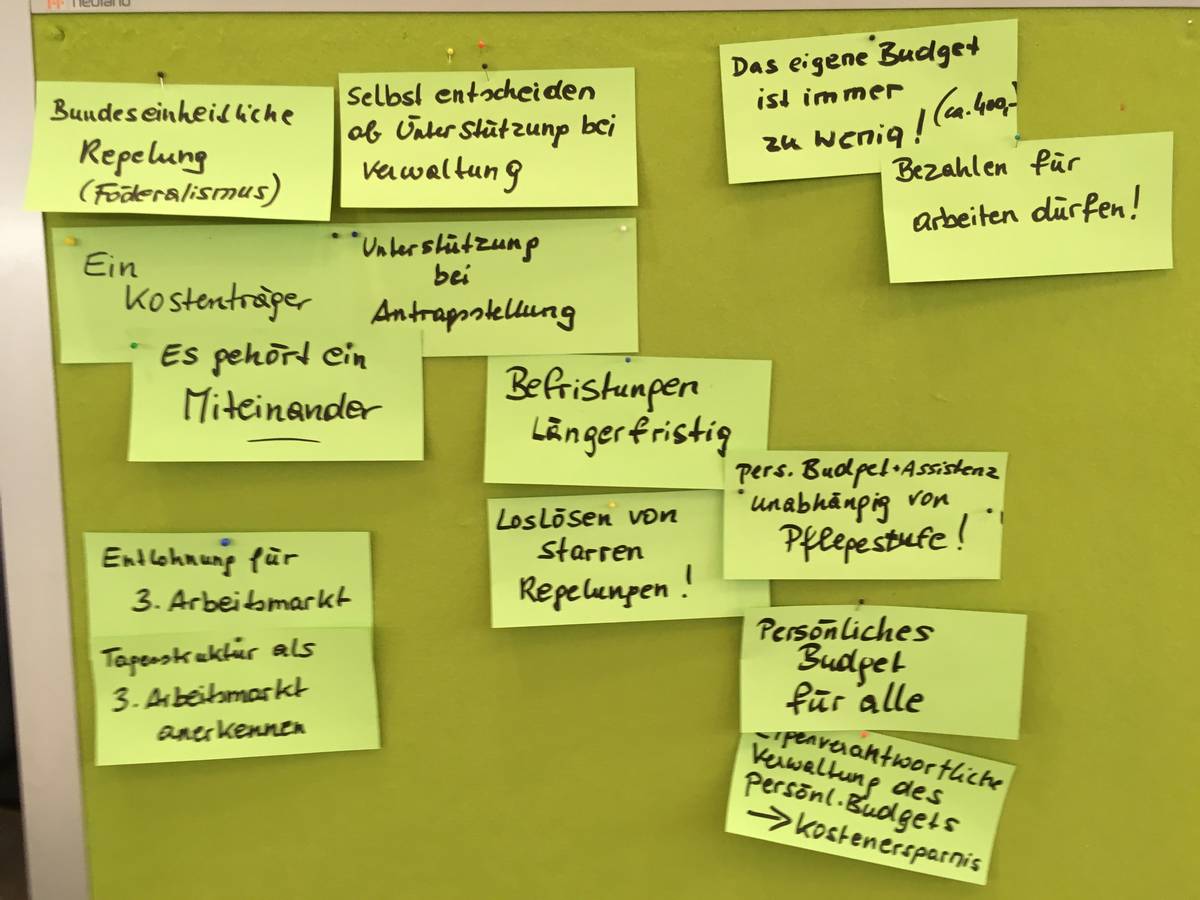 neuland
Bundeseinheitliche
Regelung
(Föderalismus)
Selbst entscheiden
ob Unterstützung bei
Verwaltung
Das eigene Budget
ist immer
zu wenig! (ca. 400,-)
Bezahlen für
arbeiten dürfen!
Ein
Kostenträger
Unterstützung
bei
Antragsstellung
Es gehört ein
Miteinander
Befristungen
Längerfristig
pers. Budget + Assistenz
unabhängig von
Pflegestufe!
Loslösen von
starren
Regelungen!
Entlohnung für
3. Arbeitsmarkt
Tagesstruktur als
3. Arbeitsmarkt
anerkennen
Persönliches
Budget
für alle
Eigenverantwortliche
Verwaltung des
Persönl. Budgets
→ Kostenersparnis